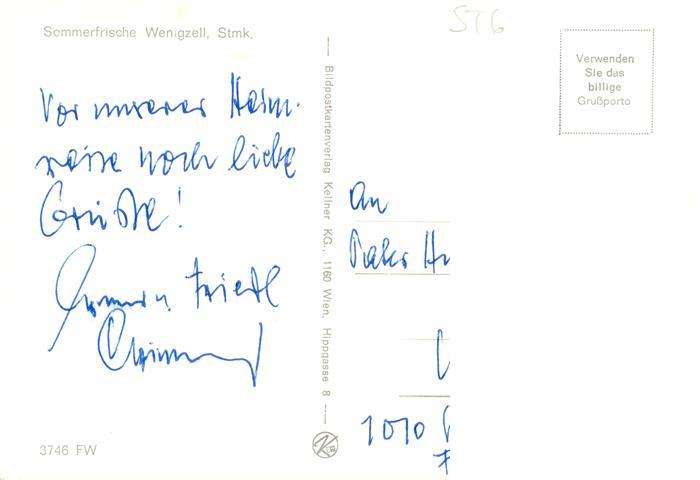 Sommerfrische Wenigzell, Stmk.
ST6
Verwenden
Sie das
billige
Grußporto
Vor unserer Heim-
reise noch liebe
Grüße!
Friedl
3746 FW
Bildpostkartenverlag Kellner KG., 1160 Wien, Hippgasse 8
An
1010